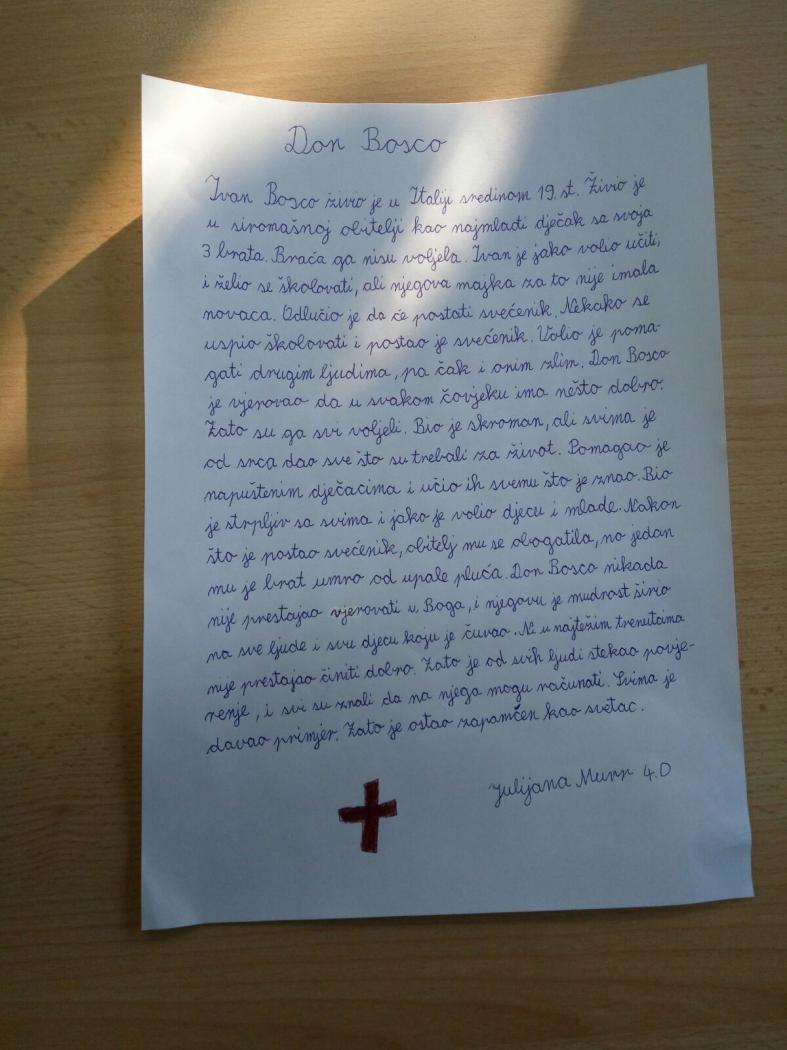 Don Bosco
Ivan Bosco živio je u Italiji sredinom 19. st. Živio je
u siromašnoj obitelji kao najmlađi dječak sa svoja
3 brata. Braća ga nisu voljela. Ivan je jako volio učiti,
i želio se školovati, ali njegova majka za to nije imala
novaca. Odlučio je da će postati svećenik. Nekako se
uspio školovati i postao je svećenik. Volio je poma-
gati drugim ljudima, pa čak i onim zlim. Don Bosco
je vjerovao da u svakom čovjeku ima nešto dobro.
Zato su ga svi voljeli. Bio je skroman, ali svima je
od srca dao sve što su trebali za život. Pomagao je
napuštenim dječacima i učio ih svemu što je znao. Bio
je strpljiv sa svima i jako je volio djecu i mlade. Nakon
što je postao svećenik, obitelj mu se obogatila, no jedan
mu je brat umro od upale pluća. Don Bosco nikada
nije prestajao vjerovati u Boga, i njegovu je mudrost širio
na sve ljude i svu djecu koju je čuvao. Ni u najtežim trenutcima
nije prestajao činiti dobro. Zato je od svih ljudi stekao povje-
renje, i svi su znali da na njega mogu računati. Svima je
davao primjer. Zato je ostao zapamćen kao svetac.
Julijana Murr 4.D